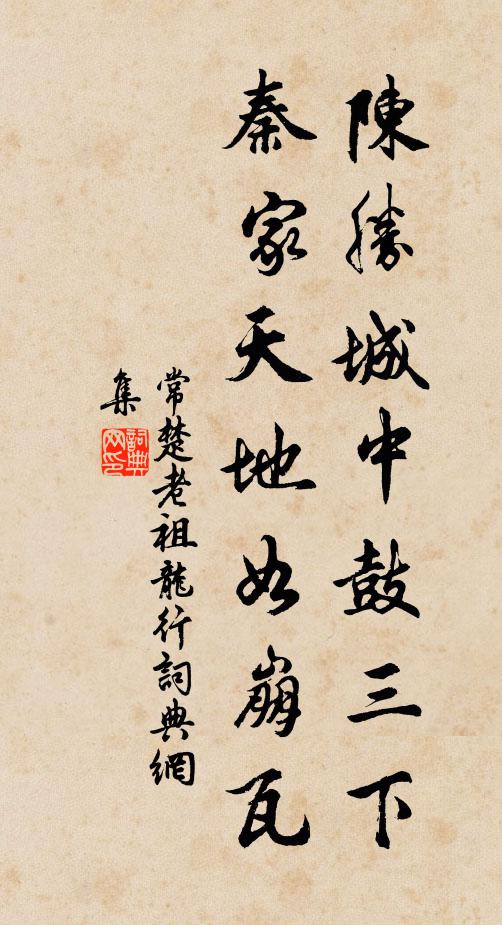 陳勝城中鼓三下
秦家天地如崩瓦
常楚老祖龍行詞典網
集
詞典網印